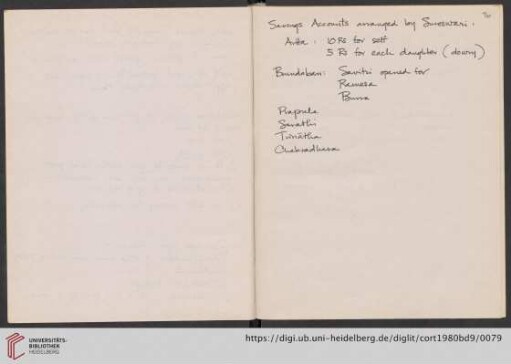 Savings Accounts arranged by Sureswari.
Anta: 10 Rs for self
5 Rs for each daughter (dowry)
Brundaban: Savitri opened for
Ramesa
Prapula
Sarathi
Trinātha
Chakradhara
UNIVERSITÄTS-
BIBLIOTHEK
HEIDELBERG
https://digi.ub.uni-heidelberg.de/diglit/cort1980bd9/0079